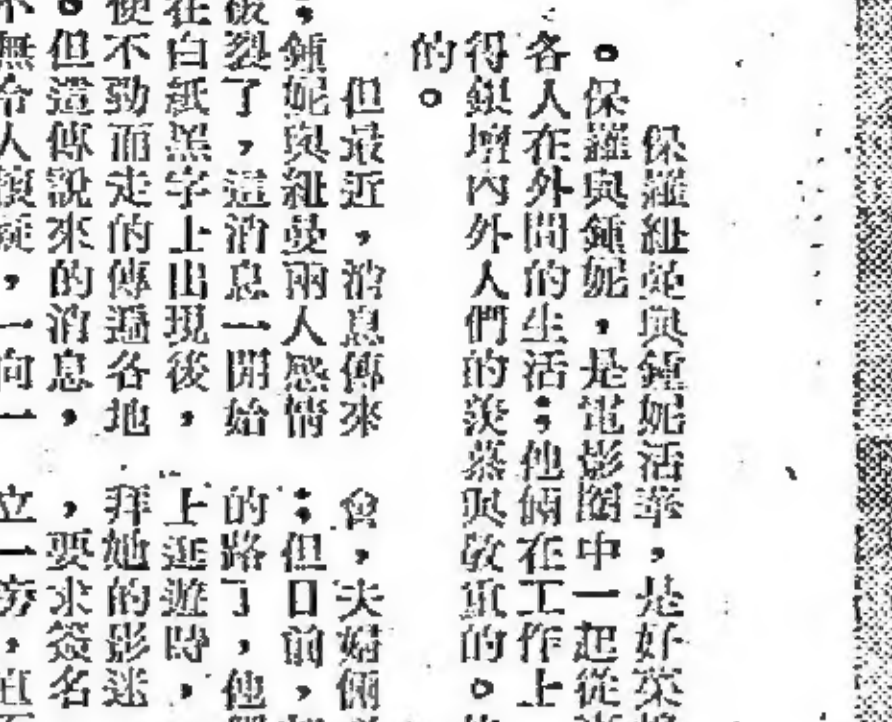 保羅紐曼與鍾妮活華，是好萊
。保羅與鍾妮，是電影圈中一起從
各人在外間的生活；他倆在工作上
得銀壇內外人們的羨慕與敬重的。
的。
但最近，消息傳來
；鍾妮與紐曼兩人感情
破裂了，這消息一開始
在白紙黑字上出現後，
便不勁而走的傳遍各地
。但這傳說來的消息，
不無令人懷疑，一向一
會，夫婦倆
；但日前，
的路了，他
上逛遊時，
拜她的影迷
，要求簽名
立一旁，直